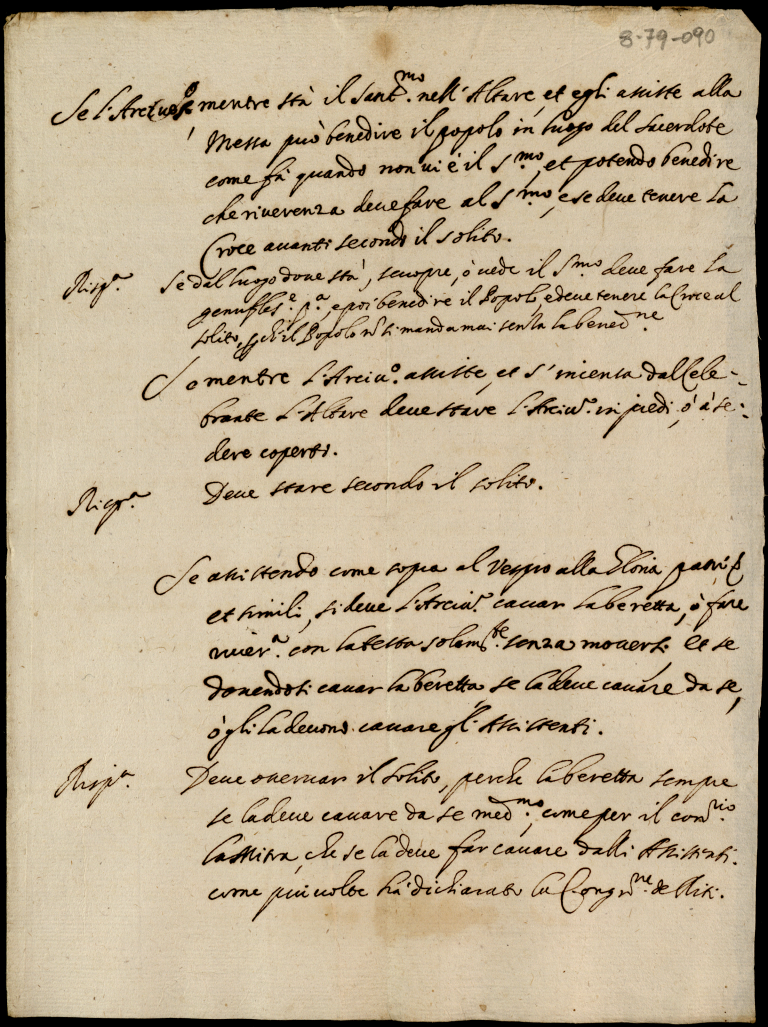 8-79-090
Se l'Arciuo, mentre stà il Santmo. nell'Altare, et egli assiste alla
Messa può benedire il popolo in luogo del Sacerdote
come fà quando non ui è il Smo, et potendo benedire
che riuerenza deue fare al Smo, e se deue tenere la
Croce auanti secondo il solito.
Rispa. Se dal luogo doue stà, scuopre, ò uede il Smo deue fare la
genufles.e p.a, e poi benedire il Popolo, e deue tenere la Croce al
solito, il Popolo si manda mai senza la benedne
Io mentre l'Arciuo. assiste, et s'incensa dal Cele-
brante l'Altare deue stare l'Arciuo. in piedi, ò à se-
dere coperto.
Rispa. Deue stare secondo il solito.
Se assistendo come sopra al Vespro alla Gloria patri &
et simili, si deue l'Arciuo. cauar la beretta, ò fare
riuera. con la testa solamte. senza mouersi, et se
douendosi cauar la beretta se la deue cauare da se,
ò gli la deuono cauare gl'Assistenti.
Rispa. Deue osseruar il solito, perche la beretta sempre
se la deue cauare da se medmo, come per il conrio.
la Mitra, che se la deue far cauare dalli Assistenti.
come più uolte hà dichiarato la Congrne. de Riti.